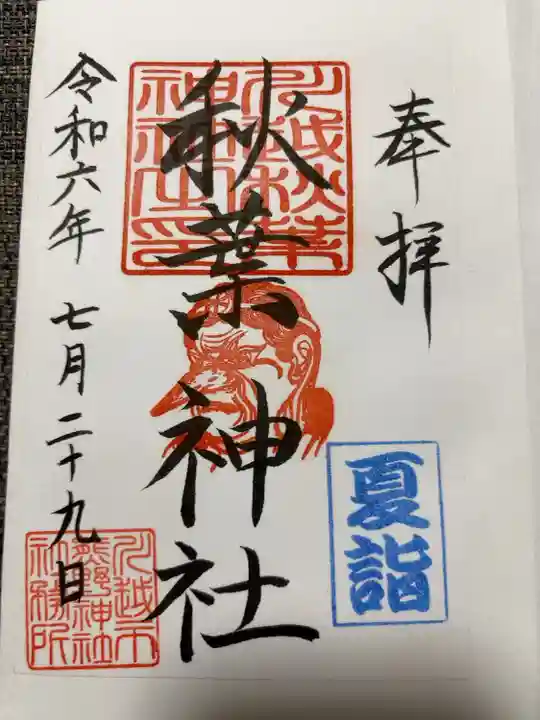 奉拝
夏詣
川越秋葉
神社之印
秋葉神社
令和六年 七月二十九日
川越市
熊野神社
社務所